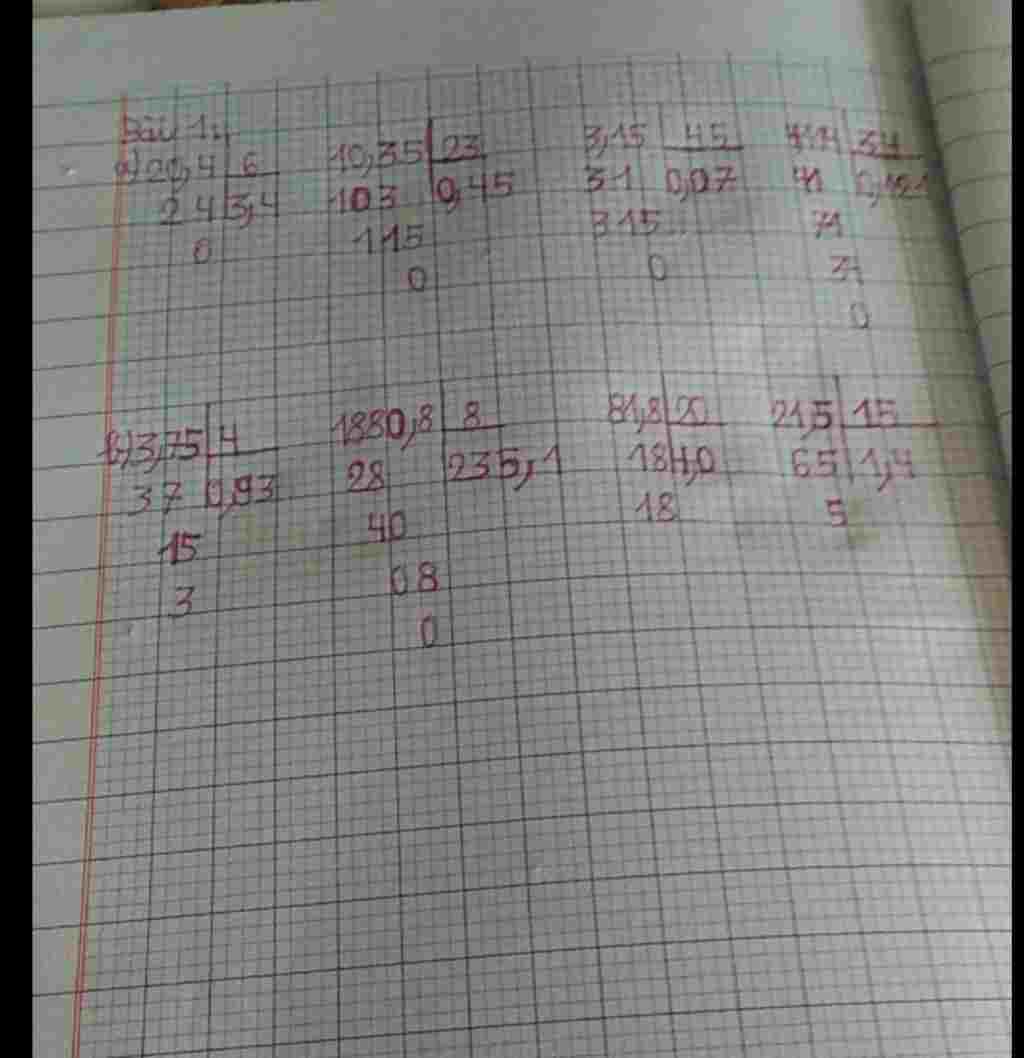 Bài 1:
a) 20,4 | 6 10,35 | 23 3,15 | 45
2 4 | 3,4 103 | 0,45 31 | 0,07
0 115 315
0 0
0
b) 3,75 | 4 1880,8 | 8 81,8 | 20 21,5 | 15
37 | 0,93 28 | 235,1 18 | 4,0 65 | 1,4
15 40 18 5
3 08
0